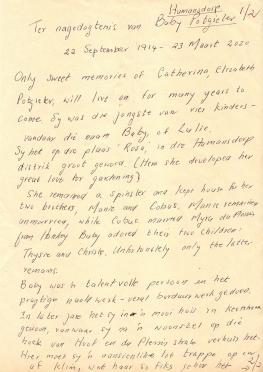 Humansdorp
Ter nagedagtenis van Baby Potgieter 1/2
22 September 1914 - 23 Maart 2020
Only sweet memories of Catherina, Elizabeth
Potgieter, will live on for many years to
come Sy was die jongste van vier kinders-
vandaar die naam Baby, of Lulie.
Sy het op die plaas 'Rosa', in die Humansdorp
distrik groot geword (Here she developed her
great love for gardening)
She remained a Spinster and kept house for her
two brothers, Manie and Cobus. Manie remained
unmarried, while Cobus married Myra du Plessis
from Hankey Baby adored their two children:
Thysie and Christo. Unfortunately only the latter
remains.
Baby was 'n talentvolle persoon en het
pragtige naaldwerk - veral borduurwerk gedoen.
In later jare het sy in 'n mooi huis in
gewoon, vanwaar sy na 'n woonstel op die
hoek van Hoof en du Plessis straat verhuis het.
Hier moes sy 'n aansienlike lot trappe op en
af klim, wat haar so fiks gehou het